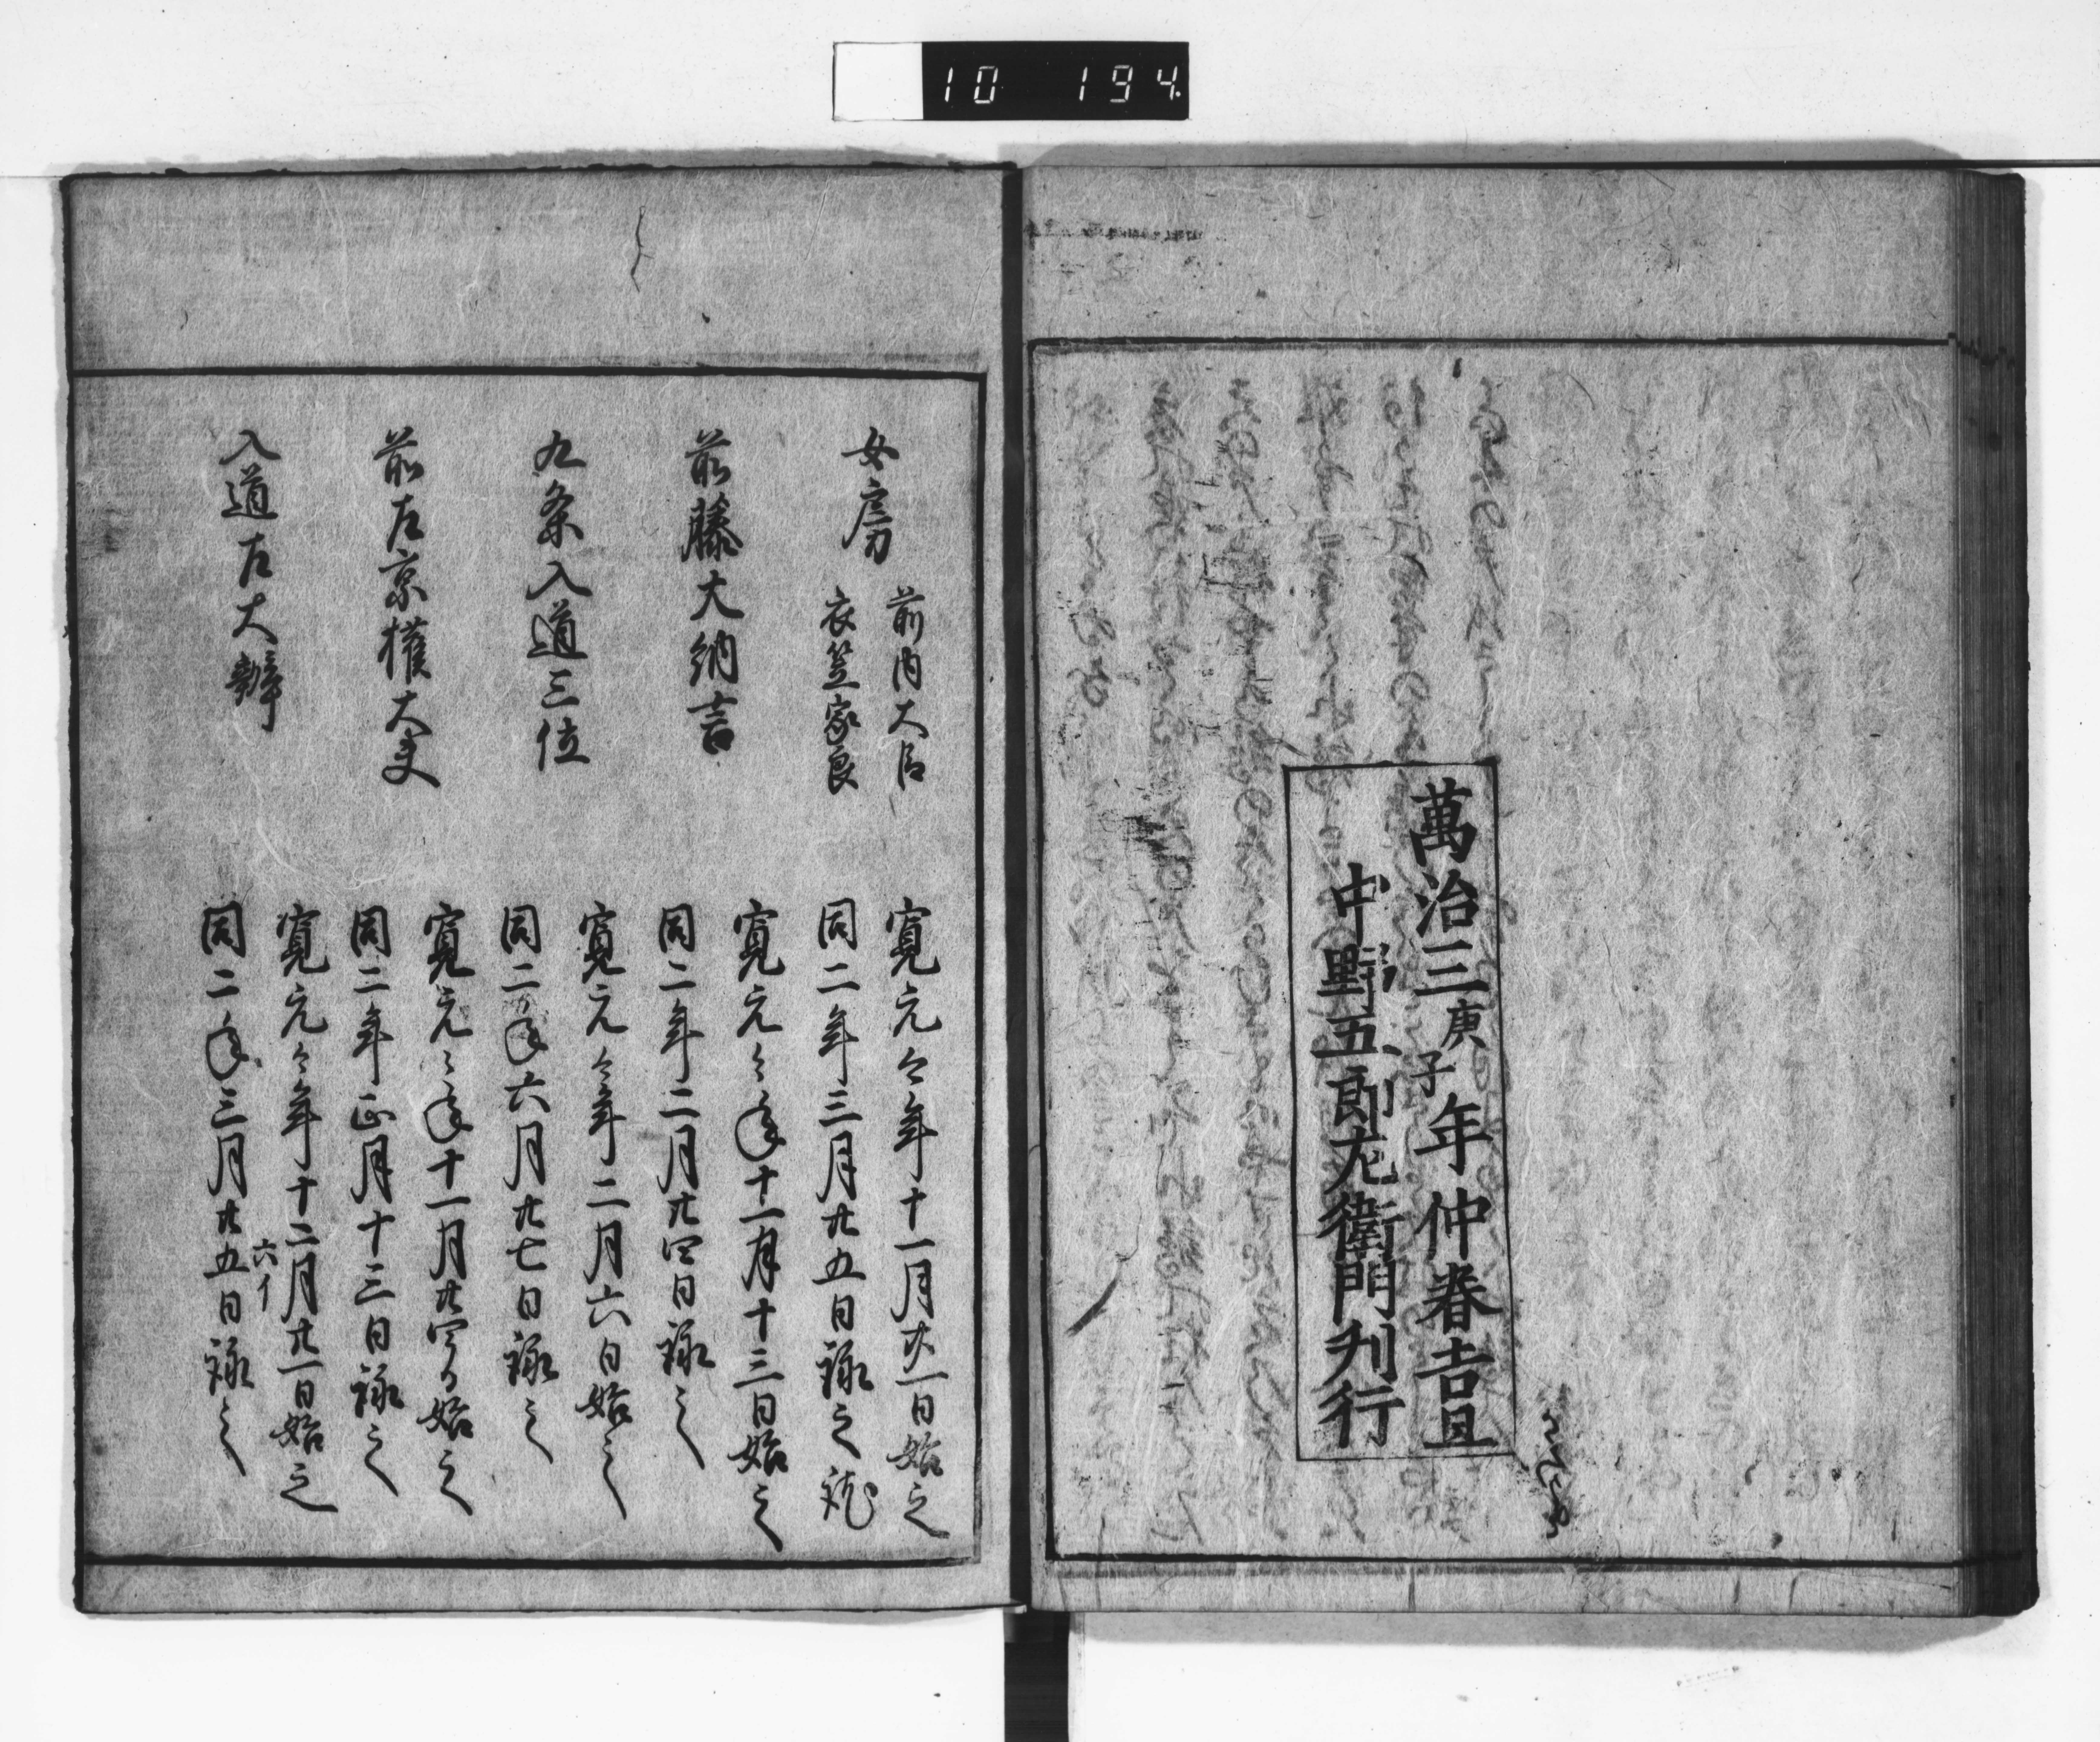 10 194
萬治三庚子年仲春吉旦
中野五郎左衛門刊行
女房 前内大臣
衣笠家良
寛元々年十一月廿一日始之
同二年三月廿五日詠之
前藤大納言
寛元々年十一月十三日始之
同二年二月廿四日詠之
九条入道三位
寛元々年二月六日始之
同二年六月廿七日詠之
前左京権大夫
寛元々年十一月廿四日始之
同二年正月十三日詠之
入道右大辨
寛元々年十二月廿一日始之
六イ
同二年三月廿五日詠之